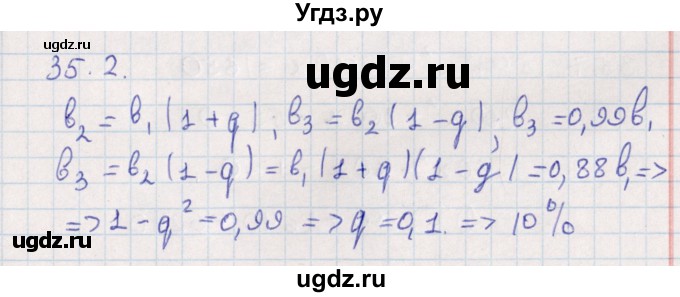 Угдз.ру
ugdz.ru
35.2.
ugdz.ru
b₂ = b₁(1+q), b₃ = b₂(1-q), b₃ = 0,99b₁
b₃ = b₂(1-q) = b₁(1+q)(1-q) = 0,88b₁ =>
=> 1-q² = 0,99 => q = 0,1. => 10%
ugdz.ru
ugdz.ru
ugdz.ru